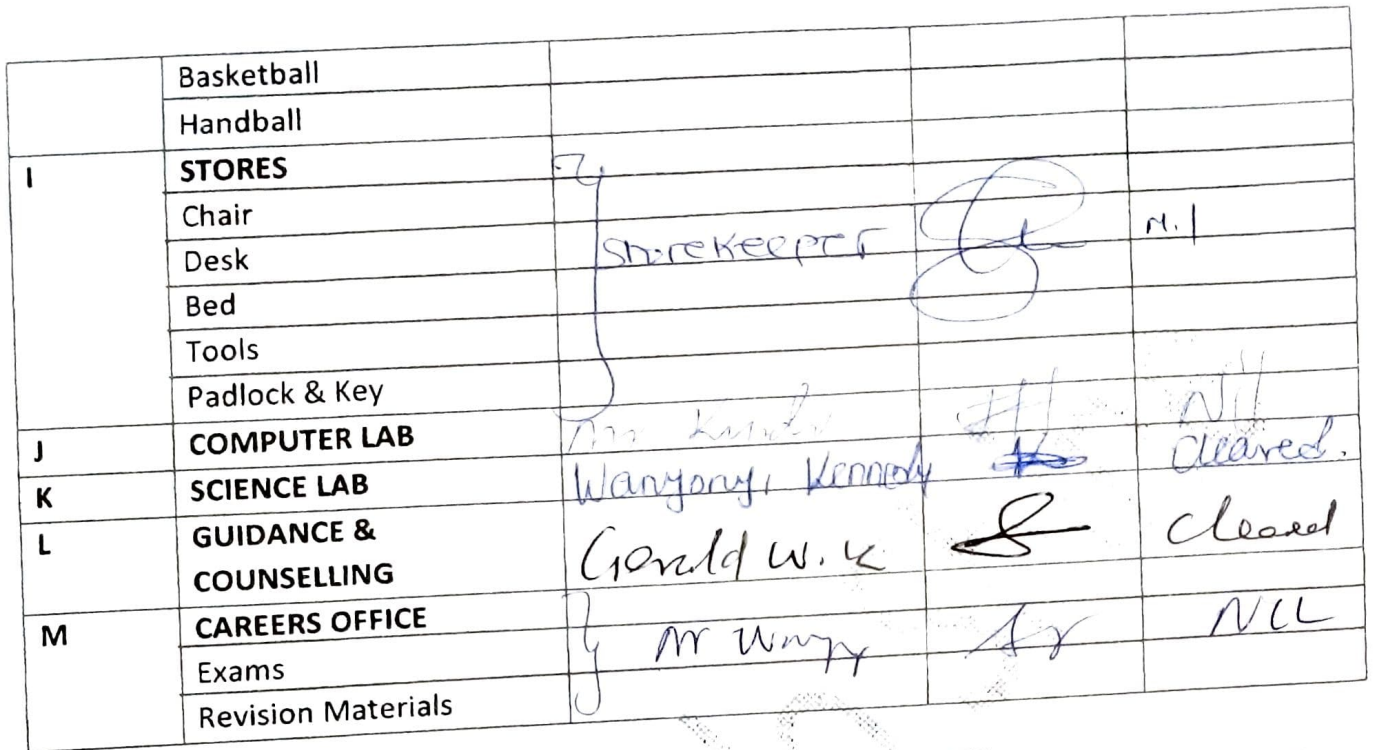 Basketball
Handball
I STORES
Chair
Desk storekeeper N.l
Bed
Tools
Padlock & Key
J COMPUTER LAB Mr Nil
K SCIENCE LAB Wanyonyi Kennedy cleared.
L GUIDANCE &
COUNSELLING Gerald W.K cleared
M CAREERS OFFICE Mr NIL
Exams
Revision Materials